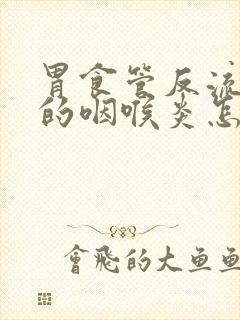 胃食管反流
的咽喉炎怎
會飛的大魚魚